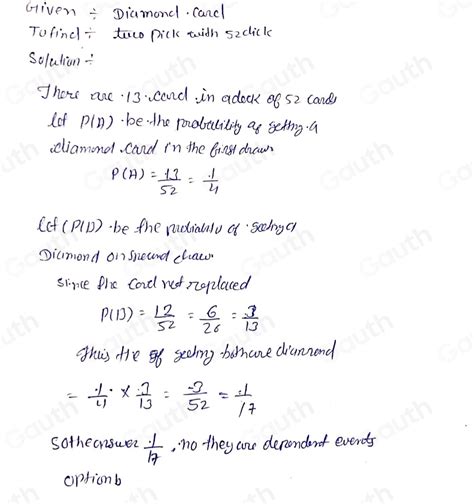 Given ÷ Diamond . Card
To find ÷ two pick with 52 click
Solution ÷
There are .13. card .in a deck of 52 cards
let P(A) .be .the probability of getting .a
diamond .card in the first drawn
P(A) = 13/52 = 1/4
Let (P(D) .be the probability of .getting a
Diamond on second draw
since the card not replaced
P(D) = 12/52 = 6/26 = 3/13
Thus the of getting both are diamond
= 1/4 × 3/13 = 3/52 = 1/17
So the answer 1/17 , no they are dependent events
option b